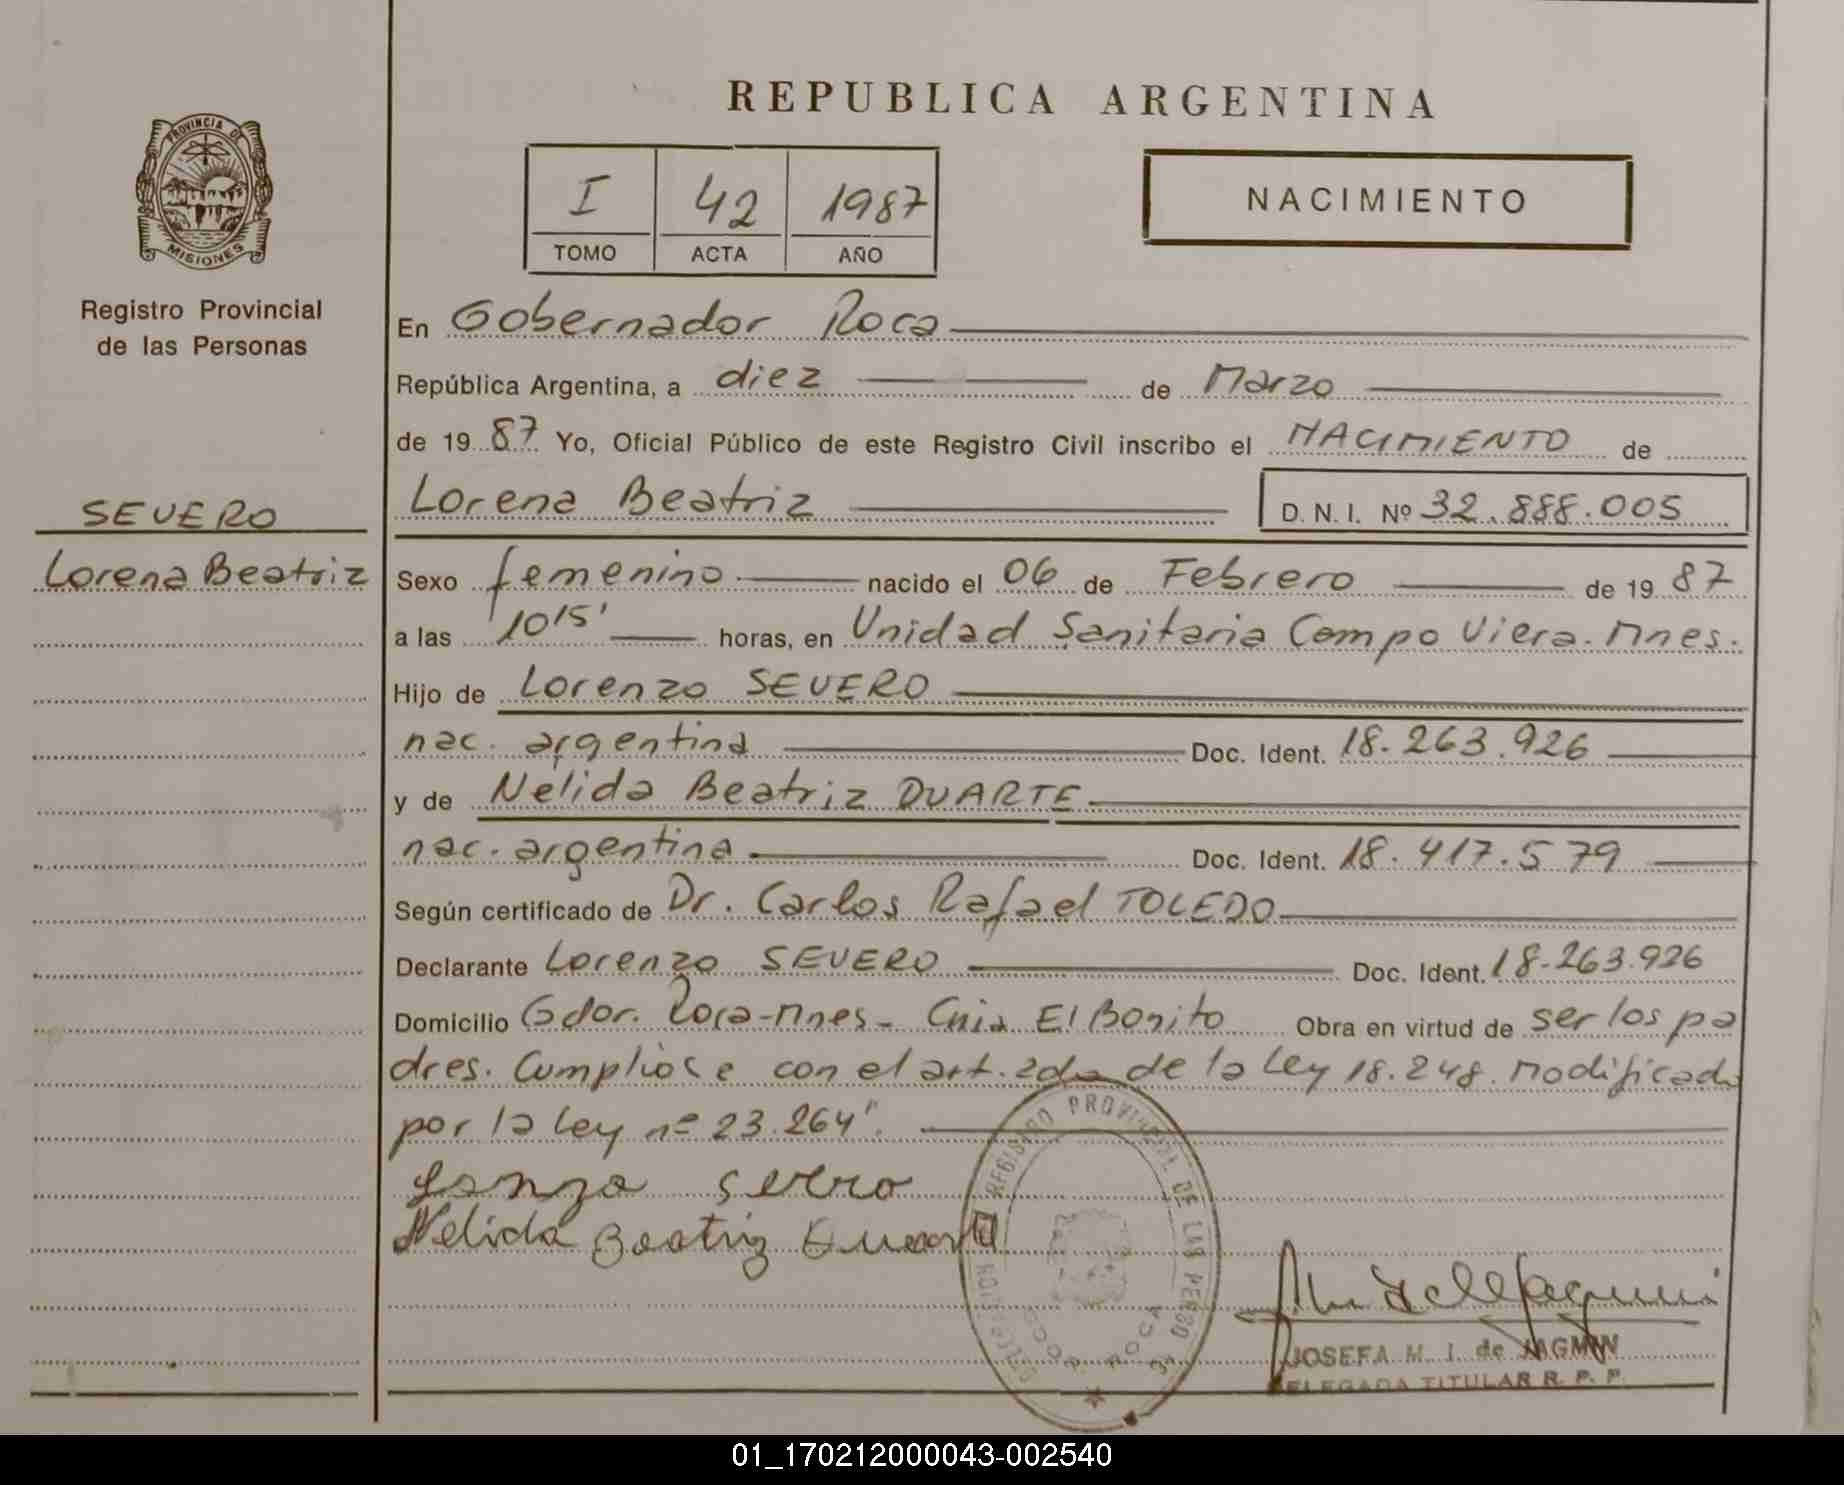 REPUBLICA ARGENTINA
PROVINCIA DE
MISIONES
Registro Provincial
de las Personas
I 42 1987
TOMO ACTA AÑO
NACIMIENTO
SEVERO
Lorena Beatriz
En Gobernador Roca
República Argentina, a diez de Marzo
de 1987 Yo, Oficial Público de este Registro Civil inscribo el NACIMIENTO de
Lorena Beatriz D. N. I. Nº 32.888.005
Sexo femenino nacido el 06 de Febrero de 1987
a las 1015' horas, en Unidad Sanitaria Campo Viera. Mnes.
Hijo de Lorenzo SEVERO
nac. argentina Doc. Ident. 18.263.926
y de Nélida Beatriz DUARTE
nac. argentina Doc. Ident. 18.417.579
Según certificado de Dr. Carlos Rafael TOLEDO
Declarante Lorenzo SEVERO Doc. Ident. 18.263.926
Domicilio Gdor. Roca-Mnes- Cnia El Bonito Obra en virtud de ser los pa
dres. Cumplióse con el art. 2do de la Ley 18.248. modificada
por la Ley nº 23.264".
Nelida
REGISTRO PROVINCIAL DE LAS PERSO
GDOR. ROCA
JOSEFA M. I. de
DELEGADA TITULAR R. P. P.
01_170212000043-002540